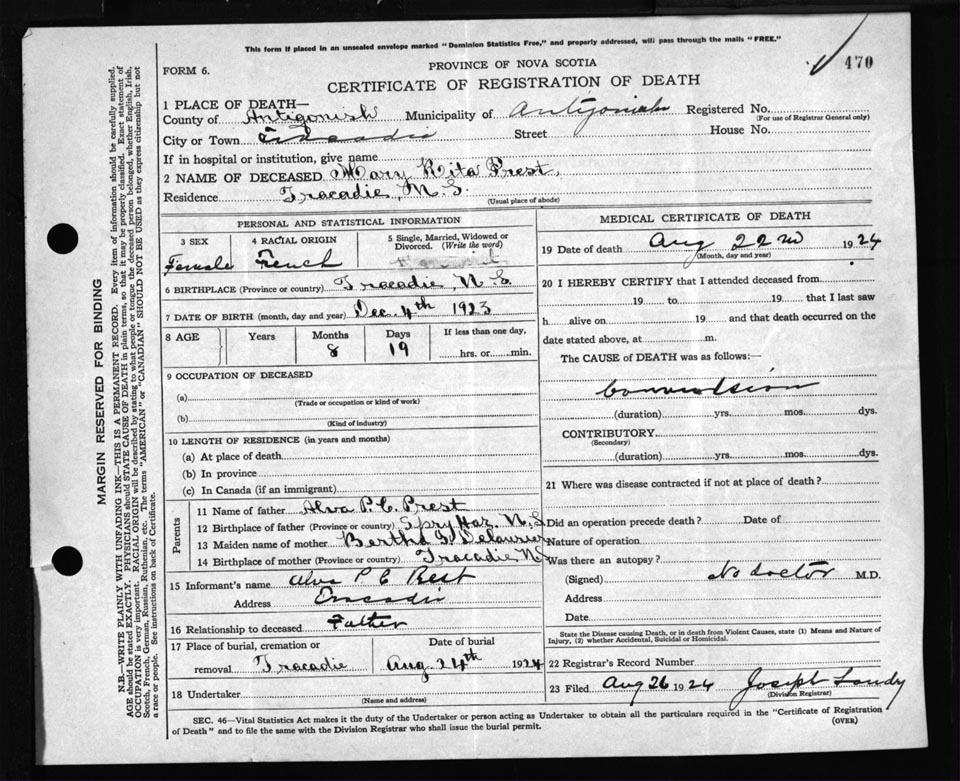 This form if placed in an unsealed envelope marked "Dominion Statistics Free," and properly addressed, will pass through the mails "FREE."
470
FORM 6.
PROVINCE OF NOVA SCOTIA
CERTIFICATE OF REGISTRATION OF DEATH
1 PLACE OF DEATH—
County of Antigonish Municipality of Antigonish Registered No.
(For use of Registrar General only)
City or Town Tracadie Street House No.
If in hospital or institution, give name
2 NAME OF DECEASED Mary Rita Prest,
Residence Tracadie, N. S.
(Usual place of abode)
PERSONAL AND STATISTICAL INFORMATION
3 SEX
Female
4 RACIAL ORIGIN
French
5 Single, Married, Widowed or Divorced. (Write the word)
6 BIRTHPLACE (Province or country) Tracadie, N. S.
7 DATE OF BIRTH (month, day and year) Dec. 4th 1923
8 AGE Years Months Days If less than one day,
8 19 hrs. or min.
9 OCCUPATION OF DECEASED
(a)
(Trade or occupation or kind of work)
(b)
(Kind of industry)
10 LENGTH OF RESIDENCE (in years and months)
(a) At place of death
(b) In province
(c) In Canada (if an immigrant)
Parents
11 Name of father Alva P. C. Prest
12 Birthplace of father (Province or country) Spry Har. N. S.
13 Maiden name of mother Bertha Delaurier
14 Birthplace of mother (Province or country) Tracadie N S
15 Informant's name Alva P C Prest
Address Tracadie
16 Relationship to deceased Father
17 Place of burial, cremation or Date of burial
removal Tracadie Aug. 24th 1924
18 Undertaker
(Name and address)
MEDICAL CERTIFICATE OF DEATH
19 Date of death Aug 22nd 1924
(Month, day and year)
20 I HEREBY CERTIFY that I attended deceased from
19 to 19 that I last saw
h alive on 19 and that death occurred on the
date stated above, at m.
The CAUSE of DEATH was as follows:—
Convulsion
(duration) yrs. mos. dys.
CONTRIBUTORY
(Secondary)
(duration) yrs. mos. dys.
21 Where was disease contracted if not at place of death?
Did an operation precede death? Date of
Nature of operation
Was there an autopsy?
(Signed) No doctor M.D.
Address
Date
State the Disease causing Death, or in death from Violent Causes, state (1) Means and Nature of
Injury, (2) whether Accidental, Suicidal or Homicidal.
22 Registrar's Record Number
23 Filed Aug 26 1924 Joseph Landry
(Division Registrar)
SEC. 46—Vital Statistics Act makes it the duty of the Undertaker or person acting as Undertaker to obtain all the particulars required in the "Certificate of Registration
of Death" and to file the same with the Division Registrar who shall issue the burial permit.
(OVER)
MARGIN RESERVED FOR BINDING
N.B.—WRITE PLAINLY, WITH UNFADING INK—THIS IS A PERMANENT RECORD. Every item of information should be carefully supplied.
AGE should be stated EXACTLY. PHYSICIANS should STATE CAUSE OF DEATH in plain terms, so that it may be properly classified. Exact statement of
OCCUPATION is very important. RACIAL ORIGIN will be described by stating to what people or tongue the deceased person belonged, whether English, Irish,
Scotch, French, German, Russian, Ruthenian, etc. The terms "AMERICAN" or "CANADIAN" SHOULD NOT BE USED as they express citizenship but not
a race or people. See instructions on back of Certificate.